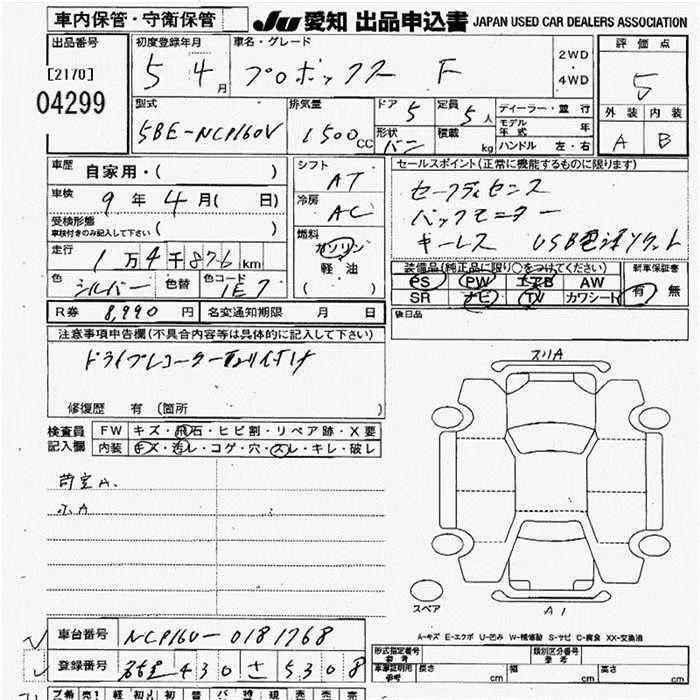 車内保管・守衛保管
JU 愛知 出品申込書 JAPAN USED CAR DEALERS ASSOCIATION
出品番号 [2170] 04299
初度登録年月 5 4月
車名・グレード プロボックス F
2WD ・ 4WD
評価点 5
外装 A 内装 B
型式 5BE-NCP160V
排気量 1500cc
ドア 5 形状 バン
定員 5人 積載 kg
ディーラー・並行
モデル年式 年
ハンドル 左・右
車歴 自家用・( )
車検 9年4月( 日)
受検形態 車検付きのみ記入して下さい ( )
走行 1万4千876km
色 シルバー 色替 色コード 1E7
R券 8,990円 名変通知期限 月 日
シフト AT
冷房 AC
燃料 ガソリン 軽油 ( )
セールスポイント(正常に機能するものに限ります)
セーフティセンス
バックモニター
キーレス USB電源ソケット
装備品(純正品に限り○をつけてください)
PS PW エアB AW
SR ナビ TV カワシート
新車保証書 有 無
後日品
注意事項申告欄(不具合内容等は具体的に記入して下さい)
修復歴 有(箇所 )
検査員記入欄
FW キズ・飛石・ヒビ割・リペア跡・X要
内装 キズ・汚レ・コゲ・穴・スレ・キレ・破レ
荷室A.
スリA
スペア
A1
A-キズ E-エクボ U-凹み W-補修跡 S-サビ C-腐食 XX-交換済
車台番号 NCP160-0181768
登録番号 430 さ 5308
形式指定番号 参考
類別区分番号 参考
車庫証明用 参考 長さ cm 幅 cm 高さ cm